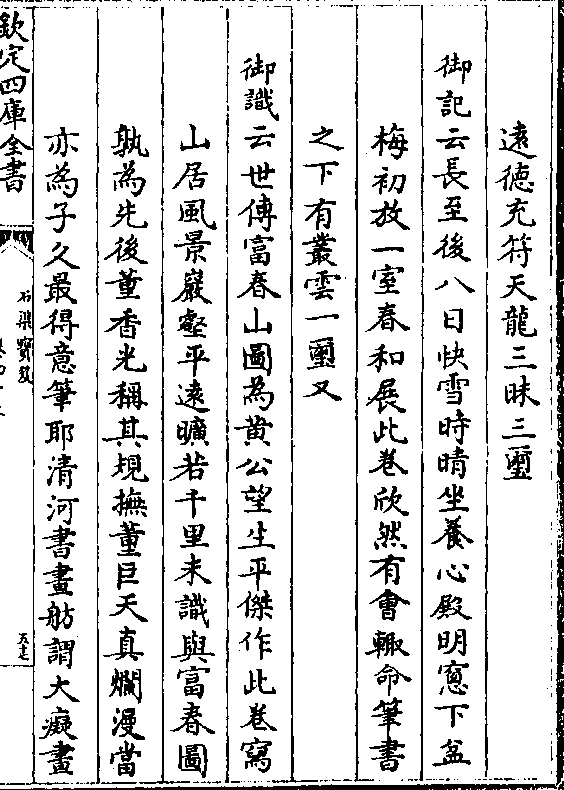 遠德充符天龍三昧三璽
御記云長至後八日快雪時晴坐養心殿明窻下盆
梅初放一室春和展此卷欣然有會輒命筆書
之下有叢雲一璽又
御識云世傳富春山圖為黄公望生平傑作此卷寫
山居風景巖壑平遠曠若千里未識與富春圖
孰為先後董香光稱其規撫董巨天真爛漫當
亦為子久最得意筆耶清河書畫舫謂大癡畫
欽定四庫全書
石渠寳笈
五十七